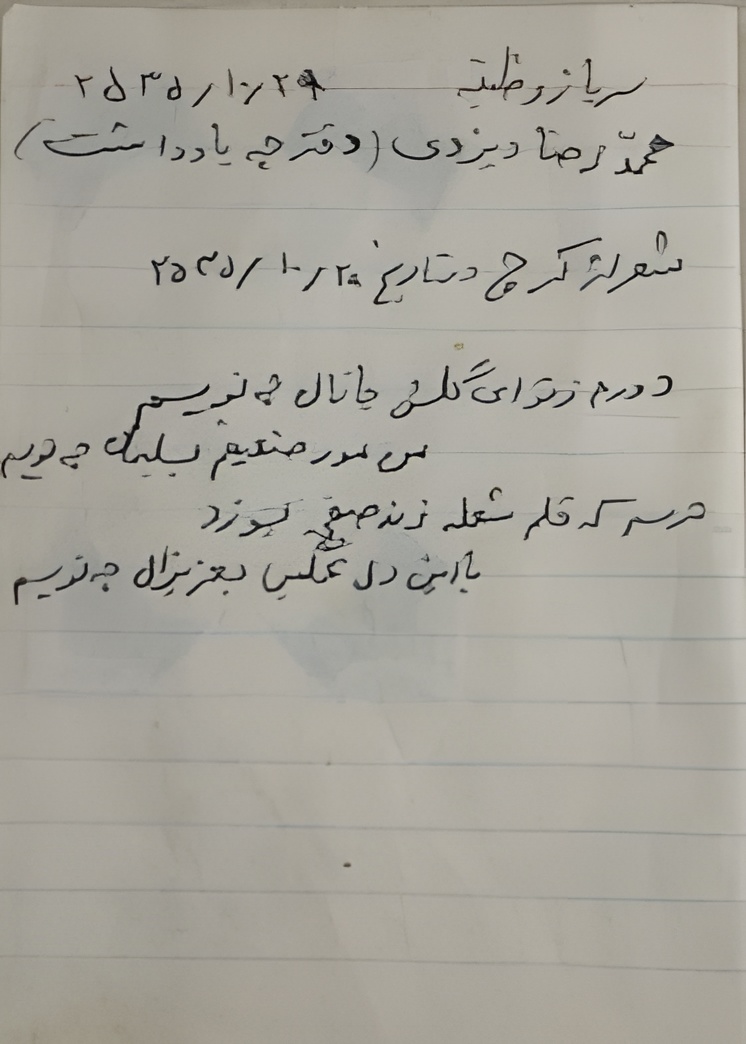 سرباز وظیفه ۲۵۳۵/۱۰/۲۹
محمدرضا دیزدی (دفترچه یادداشت)
شعر از کرج در تاریخ ۲۵۳۵/۱۰/۲۰
دورم ز تو ای گلش جانان چه نویسم
من مور ضعیفم بسلیمان چه نویسم
ترسم که قلم شعله زند صفحه بسوزد
با این دل غمگین بعزیزان چه نویسم